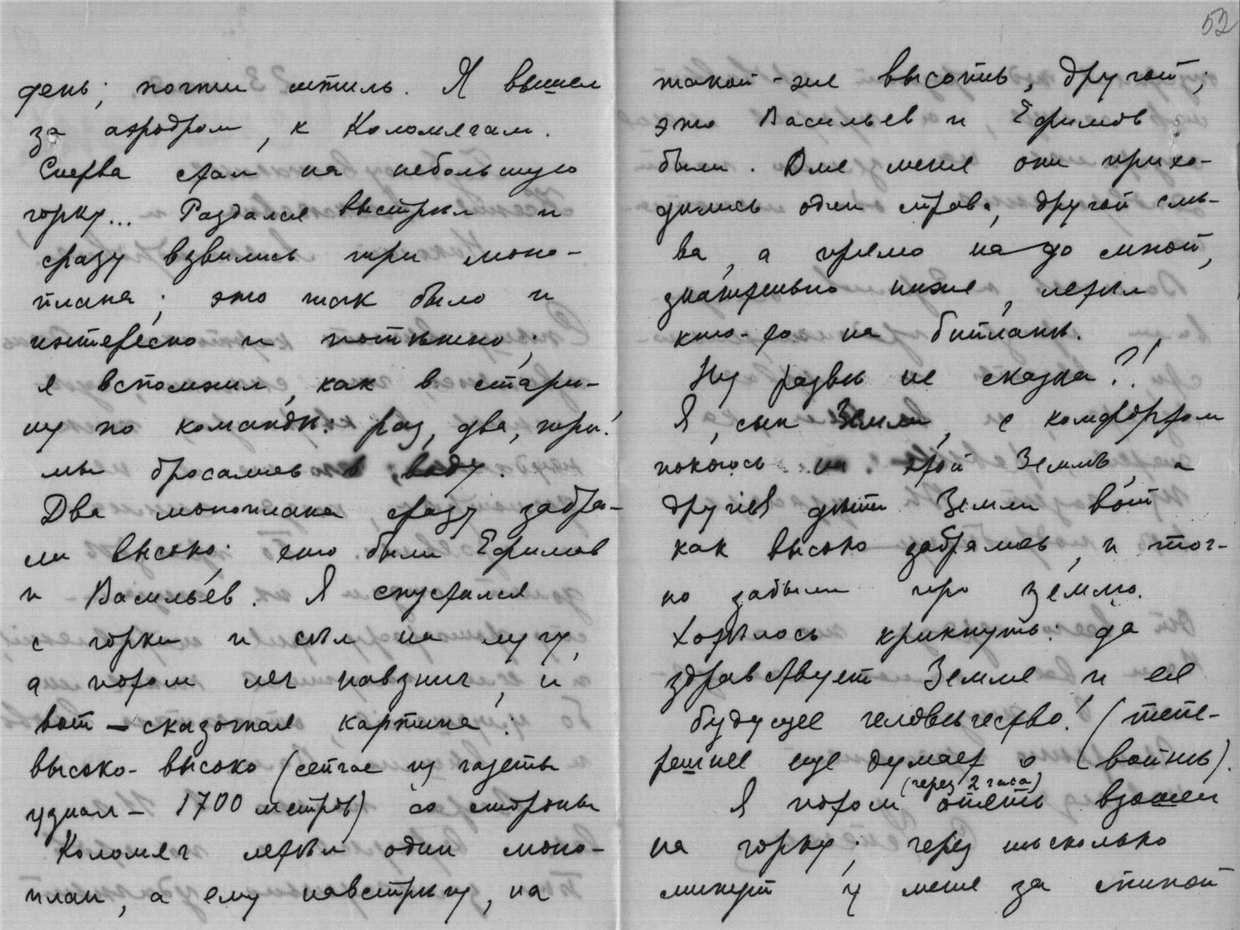 52
день; почти штиль. Я вышел
за аэродром, к Коломягам.
Сперва стал на небольшую
горку... Раздался выстрѣл и
сразу взвились три моно-
плана; это так было и
интересно и потѣшно;
я вспомнил, как в стари-
ну по командѣ: раз, два, три!
мы бросались в воду.
Два моноплана сразу забра-
ли высоко; это были Ефимов
и Васильев. Я спустился
с горки и сѣл на лугу,
а потом лег навзнич, и
вот – сказочная картина:
высоко-высоко (сейчас из газеты
узнал – 1700 метров) со стороны
Коломяг летѣл один моно-
план, а ему навстрѣчу, на
такой-же высотѣ, другой;
это Васильев и Ефимов
были. Для меня они прихо-
дились один справа, другой слѣ-
ва, а прямо на до мной,
значительно ниже, летѣл
кто-то на бипланѣ.
Ну развѣ не сказка?!
Я, сын Земли, с комфортом
покоюсь на этой Землѣ, а
другiя дѣти Земли вот
как высоко забрались, и точ-
но забыли про Землю.
Хотѣлось крикнуть: да
здравствует Земля и ея
будущее человѣчество! (тепе-
решнее еще думает о (войнѣ).
Я потом (через 2 часа) опять взошел
на горку; через нѣсколько
минут у меня за спиной